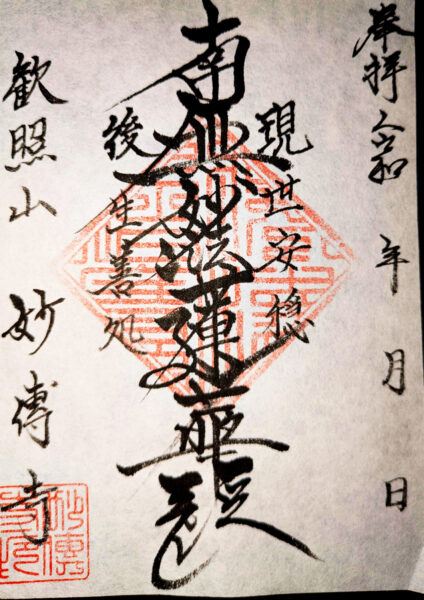 奉拝 令和 年 月 日
現世安穏
南無妙法蓮華経
後生善処
歓照山 妙傳寺